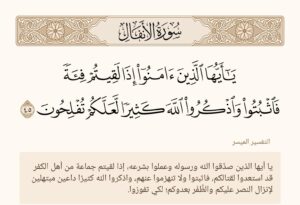 سُورَةُ الأَنفَالِ
يَٰٓأَيُّهَا ٱلَّذِينَ ءَامَنُوٓا۟ إِذَا لَقِيتُمْ فِئَةً
فَٱثْبُتُوا۟ وَٱذْكُرُوا۟ ٱللَّهَ كَثِيرًا لَّعَلَّكُمْ تُفْلِحُونَ ٤٥
التفسير الميسر
يا أيها الذين صدَّقوا الله ورسوله وعملوا بشرعه، إذا لقيتم جماعة من أهل الكفر
قد استعدوا لقتالكم، فاثبتوا ولا تنهزموا عنهم، واذكروا الله كثيرًا داعين مبتهلين
لإنزال النصر عليكم والظَّفر بعدوكم؛ لكي تفوزوا.